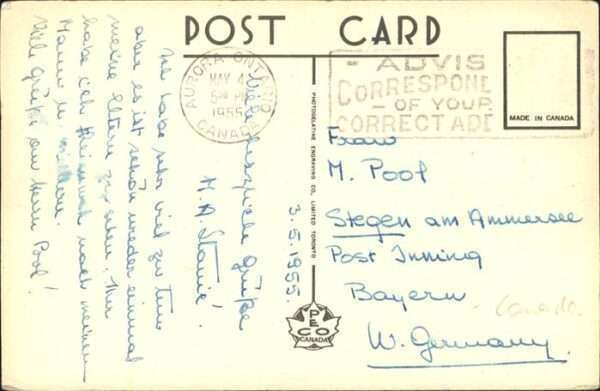 POST CARD
AURORA ONTARIO
MAY 4
5 PM
1955
CANADA
ADVIS
CORRESPOND
OF YOUR
CORRECT ADD
MADE IN CANADA
PHOTOGELATINE ENGRAVING CO. LIMITED TORONTO
PECO
CANADA
Viele herzliche Grüße
M. A. Stanić!
3.5.1955.
Ich habe sehr viel zu tun
aber es ist schön wieder einmal
meine Eltern zu sehen. Nur
habe ich Heimweh nach meinem
Mann u.
Viele Grüße an Herrn Pool!
Frau
M. Pool
Stegen am Ammersee
Post Inning
Bayern
W. Germany
Canada.